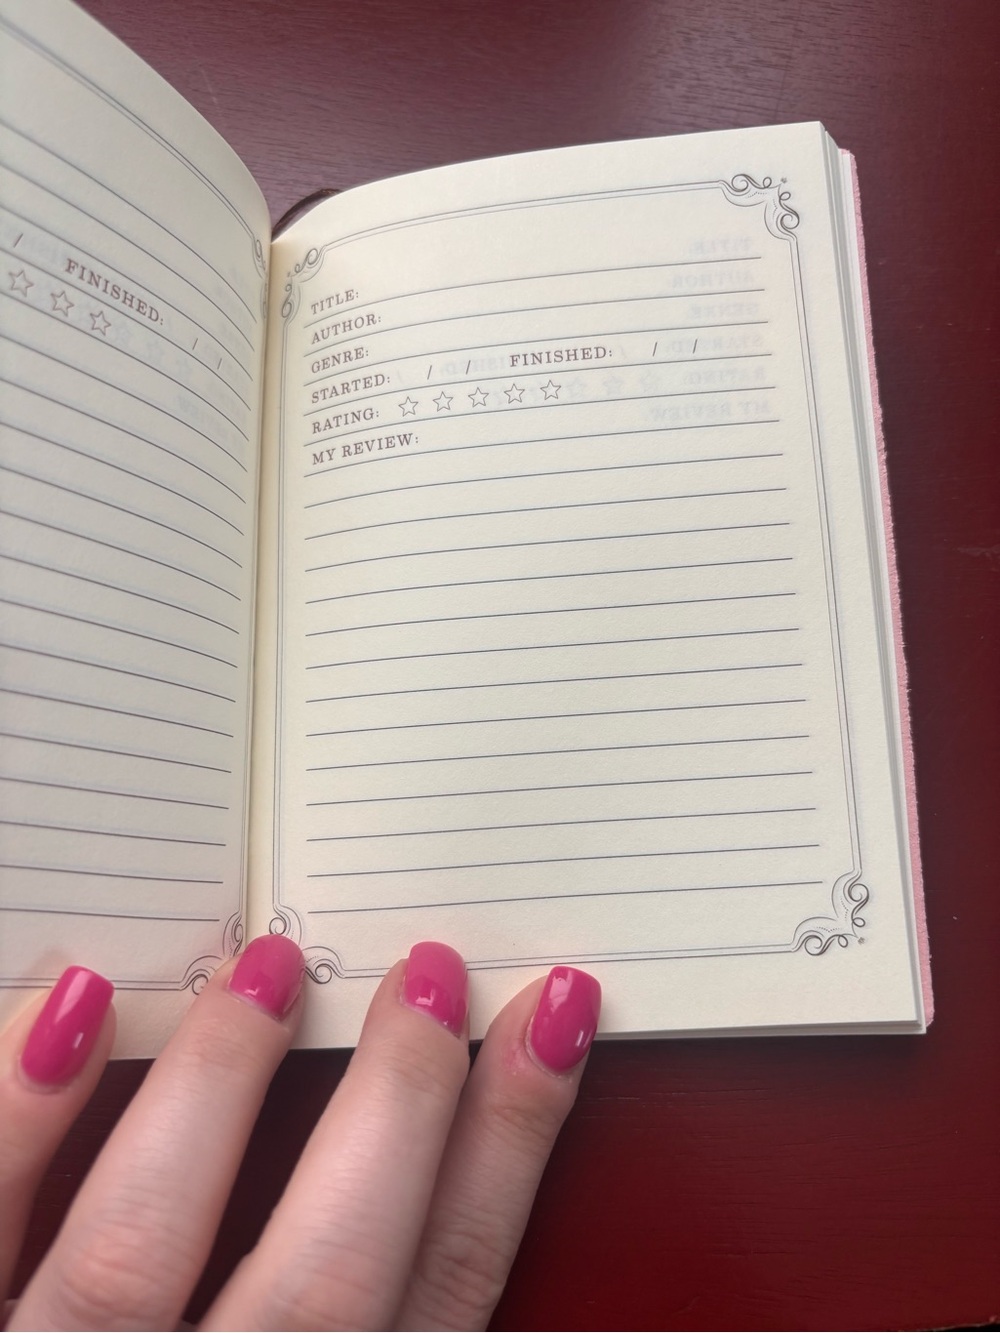 /
FINISHED: / /
TITLE:
AUTHOR:
GENRE:
STARTED: / / FINISHED: / /
RATING:
MY REVIEW: